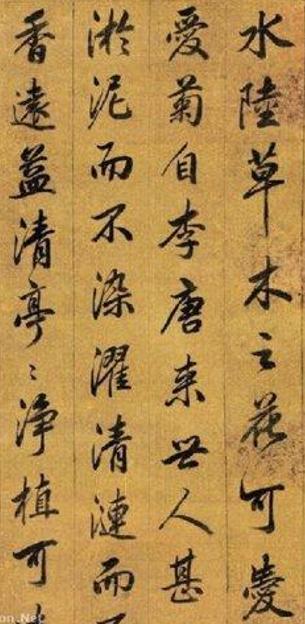 水陸草木之花可愛
愛菊自李唐来世人甚
淤泥而不染濯清漣而
香遠益清亭〻淨植可
on.Net